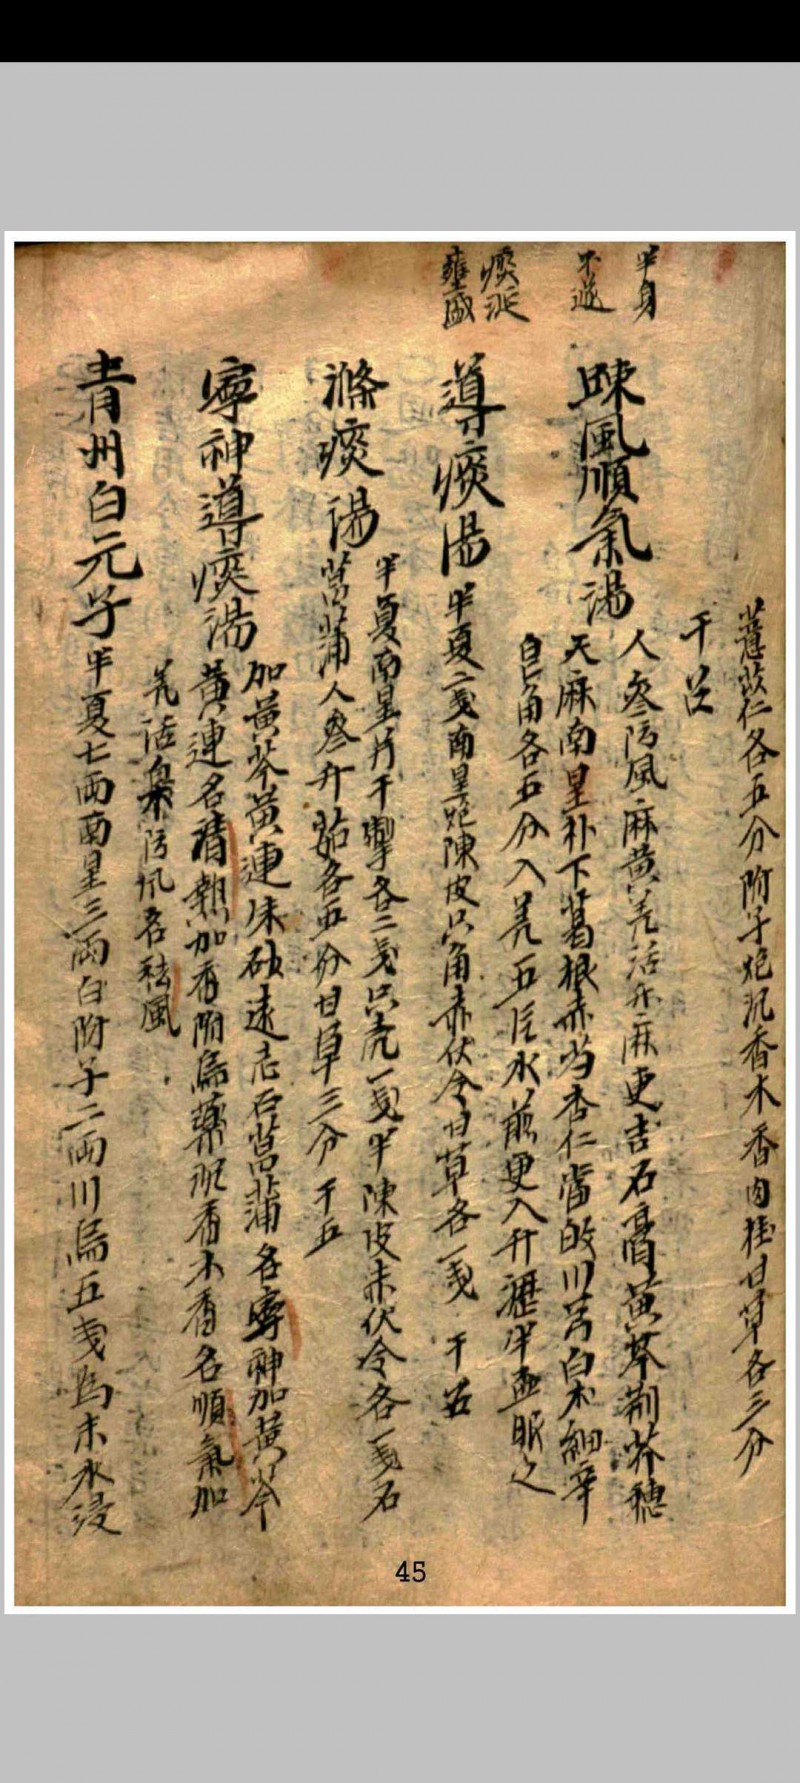 薏苡仁各五分附子炮沉香木香肉桂甘草各三分
干召
半身
不遂
疎風順氣湯
人參防風麻黃羌活升麻更吉石膏黃芩荊芥穗
天麻南星朴下葛根赤芍杏仁當皈川芎白朮細辛
皂角各五分入羌五片水煎更入竹瀝半盃服之
痰涎
壅盛
導痰湯
半夏二戔南星炮陳皮只角赤伏令甘草各一戔 干召
滌痰湯
半夏南星片干製各二戔只売一戔半陳皮赤伏令各一戔石
菖蒲人參竹茹各五分甘草三分干五
寧神導痰湯
加黃芩黃連朱砂遠志石菖蒲名寧神加黃芩
黃連名清熱加香附烏藥沉香木香名順氣加
羌活防風名祛風
青州白元子
半夏七兩南星三兩白附子二兩川烏五戔為末水浸
45